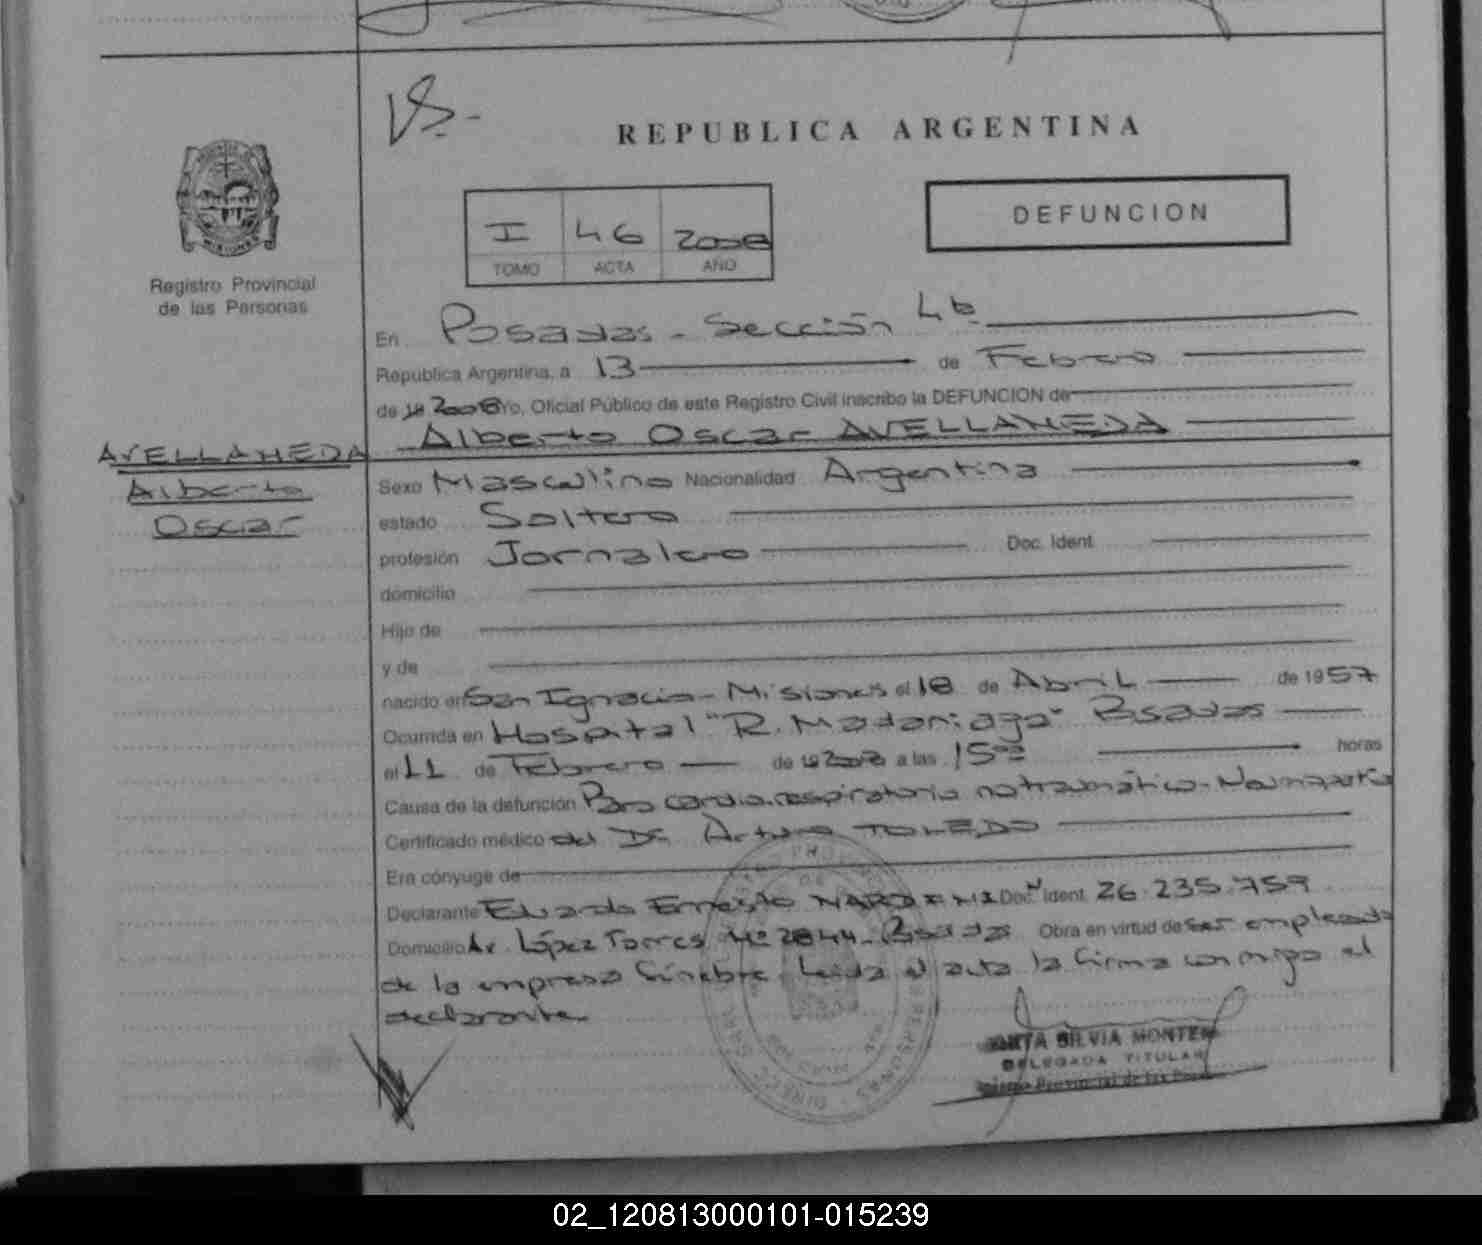 REPUBLICA ARGENTINA
DEFUNCION
I 46 2008
TOMO ACTA AÑO
Registro Provincial
de las Personas
En Posadas - Sección 4ta
Republica Argentina, a 13 de Febrero
de 19 2008 Yo, Oficial Público de este Registro Civil inscribo la DEFUNCION de
Alberto Oscar AVELLANEDA
AVELLANEDA
Alberto
Oscar
Sexo Masculino Nacionalidad Argentina
estado Soltero
profesión Jornalero Doc. Ident.
domicilio
Hijo de
y de
nacido en San Ignacio - Misiones el 18 de Abril de 1957
Ocurrida en Hospital "R. Madariaga" Posadas
el 11 de Febrero de 19 2008 a las 15 horas
Causa de la defunción Paro cardio-respiratorio no traumático -
Certificado médico del Dr. Arturo TOLEDO
Era cónyuge de
Declarante Eduardo Ernesto NARDINI Doc. Ident. 26.235.759
Domicilio Av. López Torres Nº 2844 - Posadas Obra en virtud de ser empleado
de la empresa fúnebre. Leída el acta la firma conmigo el
declarante
SILVIA MONTE
DELEGADA TITULAR
02_120813000101-015239